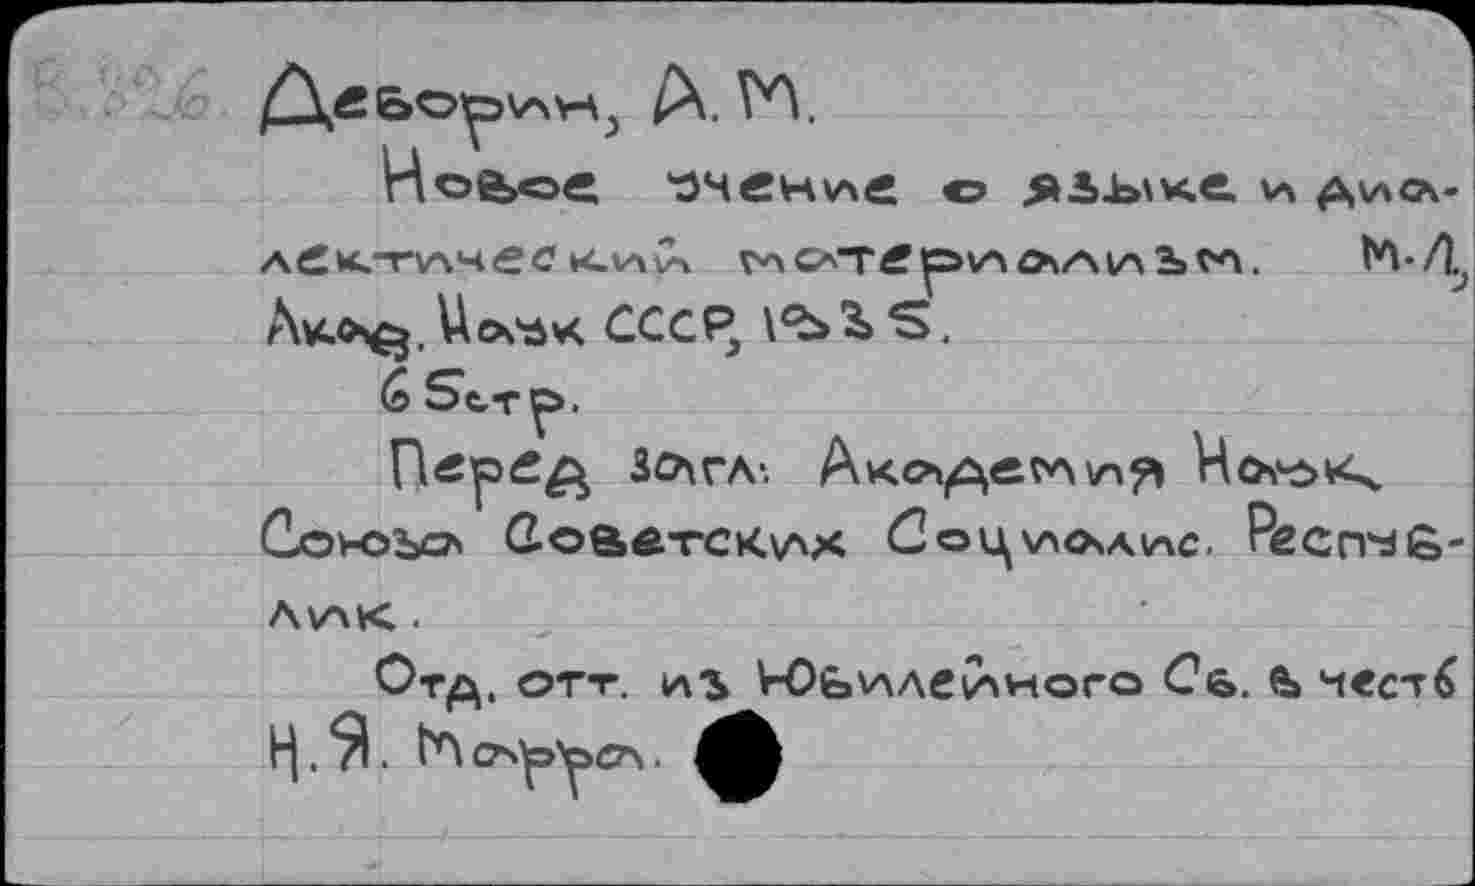 Деборин, А. М.
Новое учение о языке и диа-
лектический материализм. М.-Л.,
Акад. Наук СССР, 1935.
65 стр.
Перед загл: Академия Наук
Союза Советских Социалис. Респуб-
лик.
Отд. отт. из Юбилейного Сб. в честь
Н. Я. Марра.